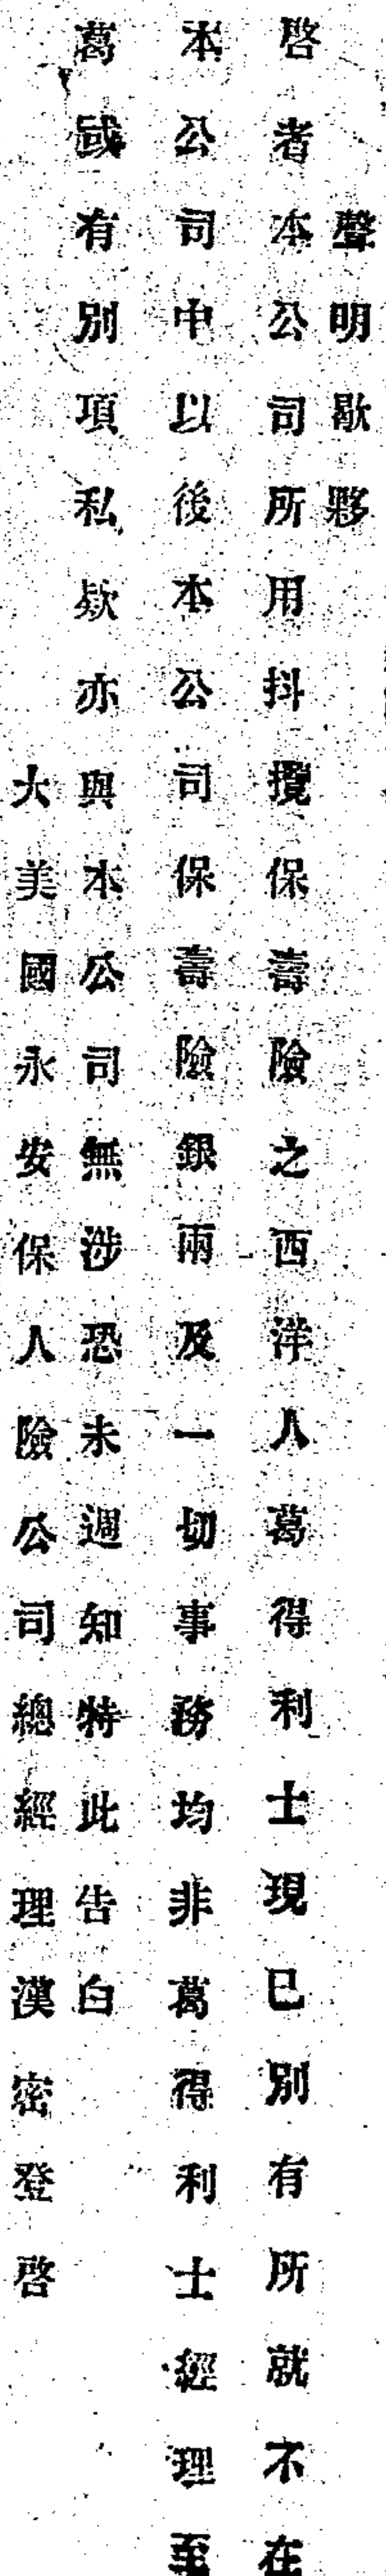 聲明歇夥
啓者本公司所用抖攬保壽險之西洋人葛得利士現已別有所就不在
本公司中以後本公司保壽險銀兩及一切事務均非葛得利士經理至
葛或有別項私欵亦與本公司無涉恐未週知特此告白
大美國永安保人險公司總經理漢密登啓